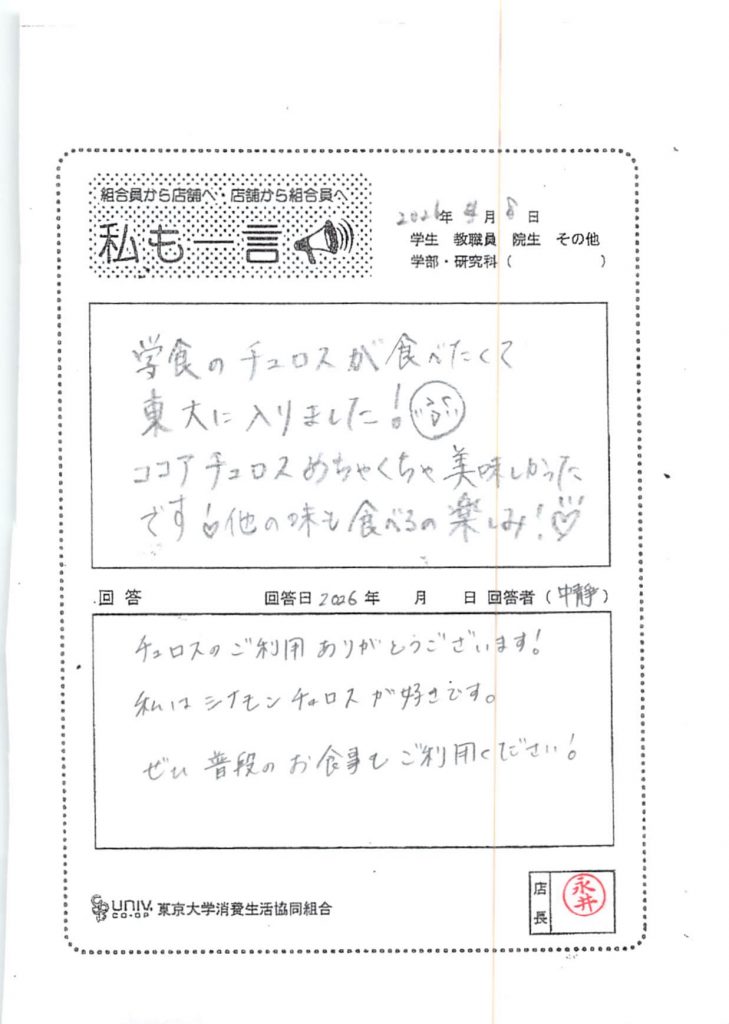 組合員から店舗へ・店舗から組合員へ
私も一言
2026年 4月 8日
学生 教職員 院生 その他
学部・研究科( )
学食のチュロスが食べたくて
東大に入りました!
ココアチュロスめちゃくちゃ美味しかった
です 他の味も食べるの楽しみ!♡
回答 回答日 2026年 月 日 回答者(中静)
チュロスのご利用ありがとうございます!
私はシナモンチュロスが好きです。
ぜひ普段のお食事もご利用ください!
UNIV. CO-OP 東京大学消費生活協同組合
店長 永井